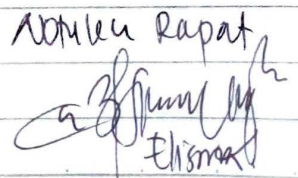 Notulen Rapat
Elisma